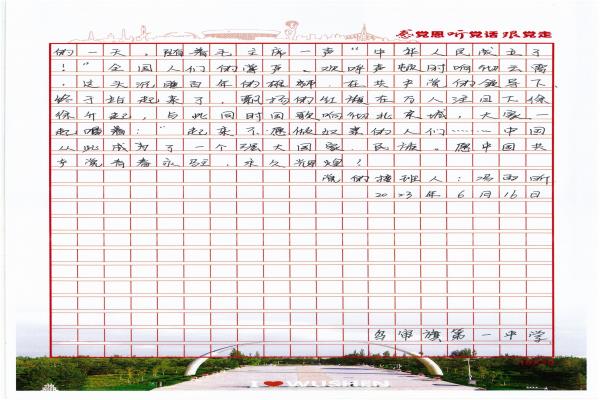 感党恩 听党话 跟党走
的一天，随着毛主席一声“中华人民成立了
！”全国人们的掌声、欢呼声顿时响彻云霄
，这头沉睡百年的雄狮，在共产党的领导下、
终于站起来了，飘扬的红旗在万人注目下徐
徐升起，与此同时国歌响彻北京城，大家一
起唱着：“起来不愿做奴隶的人们……中国
从此成为了一个强大国家、民族。愿中国共
产党青春永驻，永久辉煌！
党的接班人：冯雨昕
2023年6月16日
乌审旗第一中学
I ❤ WUSHEN